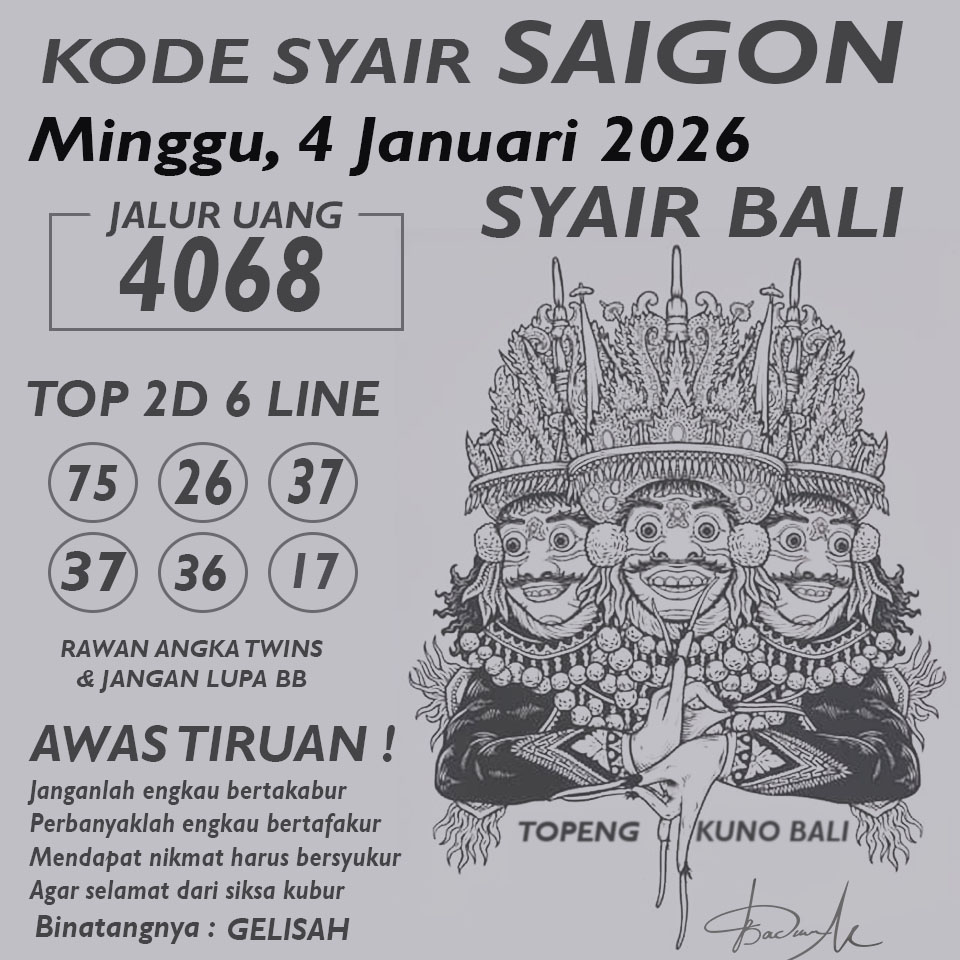 KODE SYAIR SAIGON
Minggu, 4 Januari 2026
SYAIR BALI
JALUR UANG
4068
TOP 2D 6 LINE
75 26 37
37 36 17
RAWAN ANGKA TWINS
& JANGAN LUPA BB
AWAS TIRUAN !
Janganlah engkau bertakabur
Perbanyaklah engkau bertafakur
Mendapat nikmat harus bersyukur
Agar selamat dari siksa kubur
Binatangnya : GELISAH
TOPENG KUNO BALI